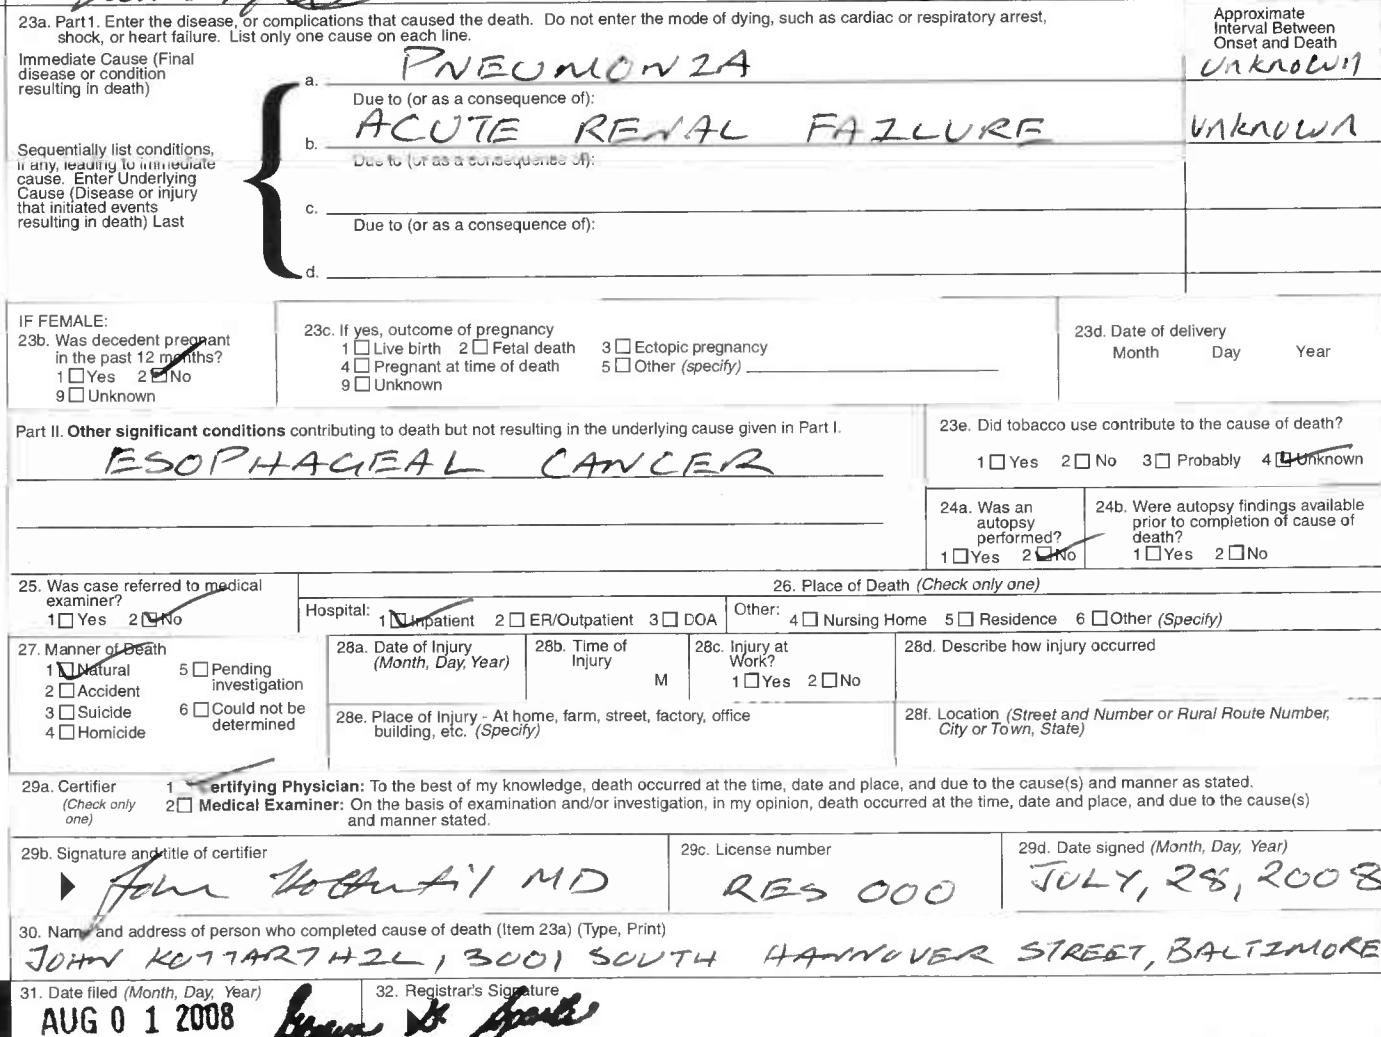 23a. Part1. Enter the disease, or complications that caused the death. Do not enter the mode of dying, such as cardiac or respiratory arrest,
shock, or heart failure. List only one cause on each line.
Approximate
Interval Between
Onset and Death
Immediate Cause (Final
disease or condition
resulting in death)
a. PNEUMONIA
unknown
Due to (or as a consequence of):
b. ACUTE RENAL FAILURE
unknown
Sequentially list conditions,
if any, leading to immediate
cause. Enter Underlying
Cause (Disease or injury
that initiated events
resulting in death) Last
Due to (or as a consequence of):
c.
Due to (or as a consequence of):
d.
IF FEMALE:
23b. Was decedent pregnant
in the past 12 months?
1 ☐ Yes 2 ☑ No
9 ☐ Unknown
23c. If yes, outcome of pregnancy
1 ☐ Live birth 2 ☐ Fetal death 3 ☐ Ectopic pregnancy
4 ☐ Pregnant at time of death 5 ☐ Other (specify)
9 ☐ Unknown
23d. Date of delivery
Month Day Year
Part II. Other significant conditions contributing to death but not resulting in the underlying cause given in Part I.
ESOPHAGEAL CANCER
23e. Did tobacco use contribute to the cause of death?
1 ☐ Yes 2 ☐ No 3 ☐ Probably 4 ☑ Unknown
24a. Was an
autopsy
performed?
1 ☐ Yes 2 ☑ No
24b. Were autopsy findings available
prior to completion of cause of
death?
1 ☐ Yes 2 ☐ No
25. Was case referred to medical
examiner?
1 ☐ Yes 2 ☑ No
26. Place of Death (Check only one)
Hospital: 1 ☑ Inpatient 2 ☐ ER/Outpatient 3 ☐ DOA Other: 4 ☐ Nursing Home 5 ☐ Residence 6 ☐ Other (Specify)
27. Manner of Death
1 ☑ Natural 5 ☐ Pending
investigation
2 ☐ Accident
3 ☐ Suicide 6 ☐ Could not be
determined
4 ☐ Homicide
28a. Date of Injury
(Month, Day, Year)
28b. Time of
Injury
M
28c. Injury at
Work?
1 ☐ Yes 2 ☐ No
28d. Describe how injury occurred
28e. Place of Injury - At home, farm, street, factory, office
building, etc. (Specify)
28f. Location (Street and Number or Rural Route Number,
City or Town, State)
29a. Certifier
(Check only
one)
1 ertifying Physician: To the best of my knowledge, death occurred at the time, date and place, and due to the cause(s) and manner as stated.
2 ☐ Medical Examiner: On the basis of examination and/or investigation, in my opinion, death occurred at the time, date and place, and due to the cause(s)
and manner stated.
29b. Signature and title of certifier
John MD
29c. License number
RES 000
29d. Date signed (Month, Day, Year)
JULY, 28, 2008
30. Name and address of person who completed cause of death (Item 23a) (Type, Print)
JOHN KOTTARTHIL, 3001 SOUTH HANNOVER STREET, BALTIMORE
31. Date filed (Month, Day, Year)
AUG 0 1 2008
32. Registrar's Signature